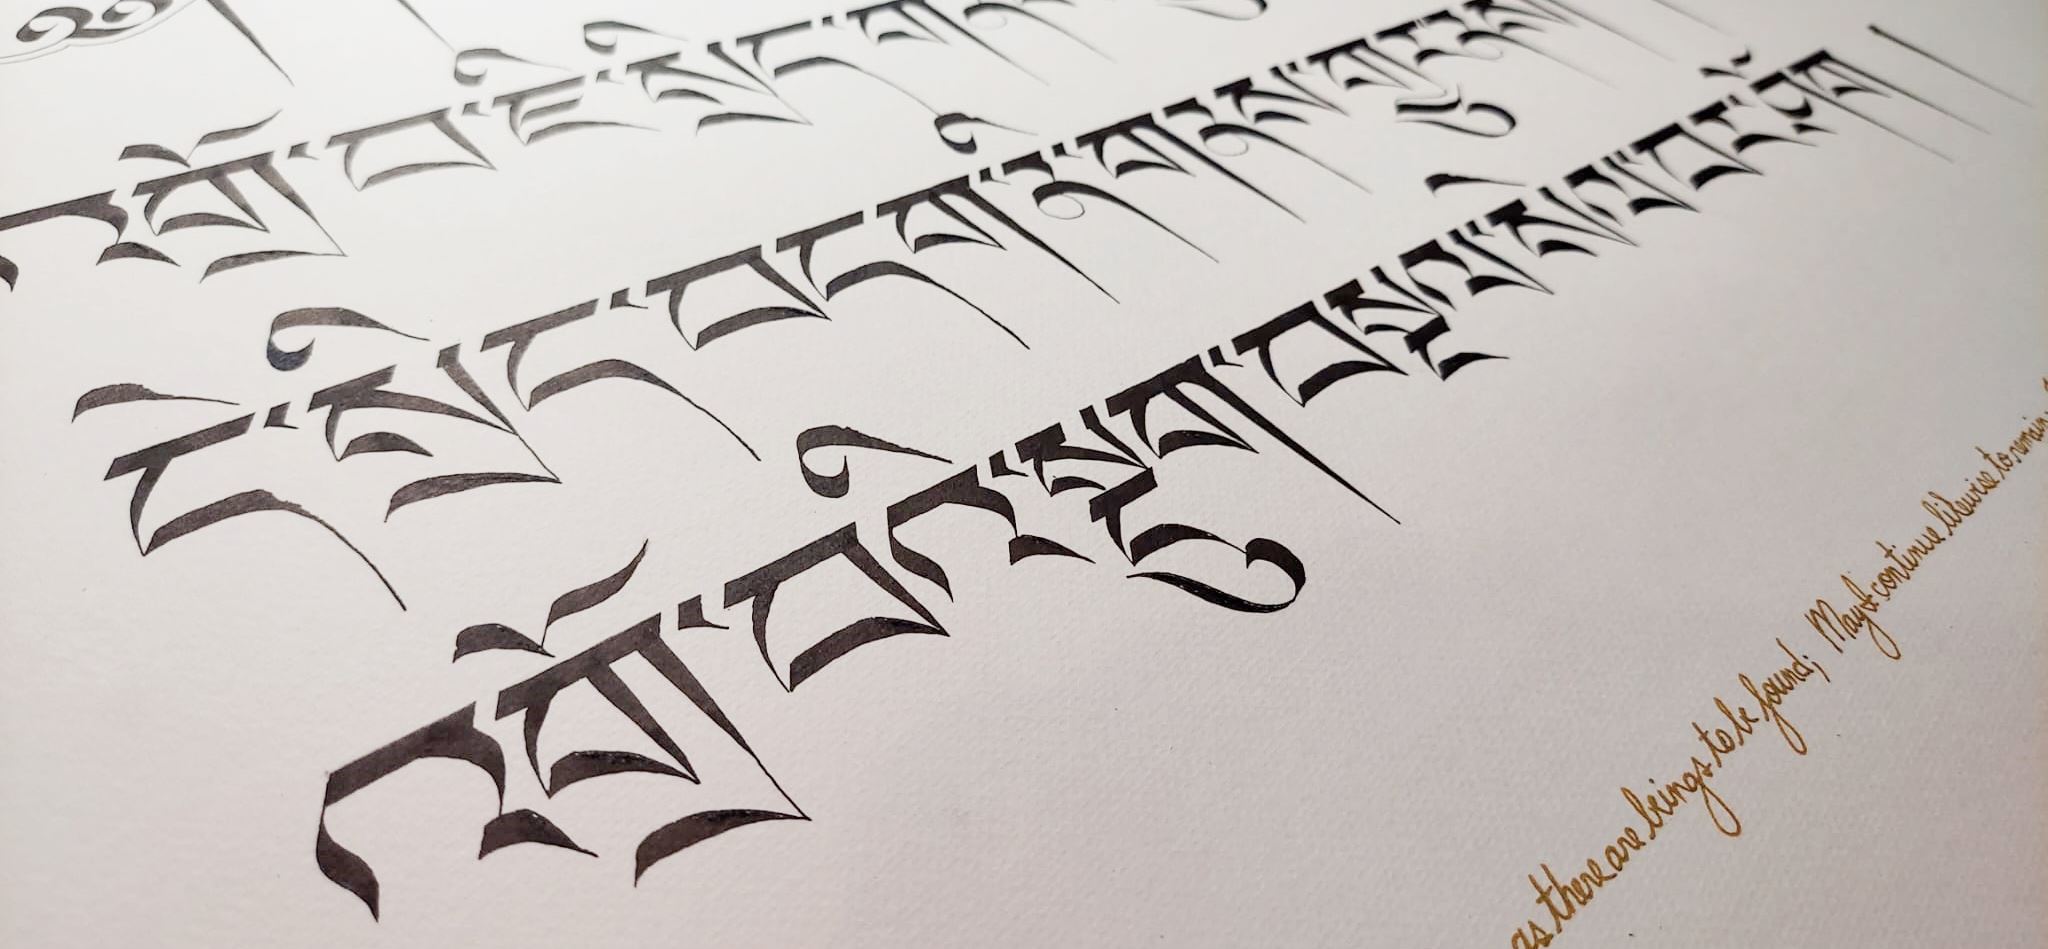 འགྲོ་བ་ཇི་སྲིད་ག
དེ་སྲིད་བདག་ནི་གནས་གྱུར་ནས
འགྲོ་བའི་སྡུག་བསྔལ་སེལ་བར་ཤོག །
as there are beings to be found; May I continue likewise to remain